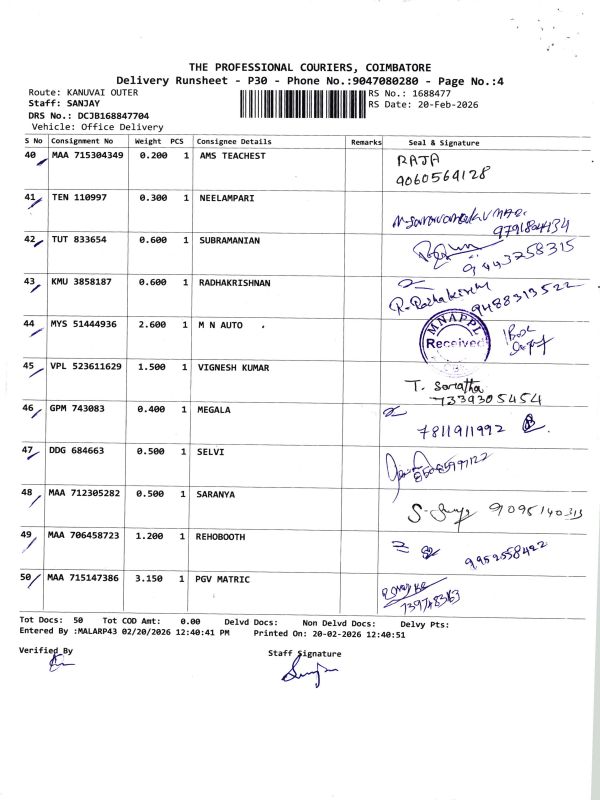 THE PROFESSIONAL COURIERS, COIMBATORE
Delivery Runsheet - P30 - Phone No.:9047080280 - Page No.:4
Route: KANUVAI OUTER
RS No.: 1688477
Staff: SANJAY
RS Date: 20-Feb-2026
DRS No.: DCJB168847704
Vehicle: Office Delivery
S No Consignment No Weight PCS Consignee Details Remarks Seal & Signature
40 MAA 715304349 0.200 1 AMS TEACHEST RAJA
9060564128
41 TEN 110997 0.300 1 NEELAMPARI
9791804434
42 TUT 833654 0.600 1 SUBRAMANIAN
9443258315
43 KMU 3858187 0.600 1 RADHAKRISHNAN
9488313522
44 MYS 51444936 2.600 1 M N AUTO MNAPPL Received
45 VPL 523611629 1.500 1 VIGNESH KUMAR
T.
7339305454
46 GPM 743083 0.400 1 MEGALA
7811911992
47 DDG 684663 0.500 1 SELVI
48 MAA 712305282 0.500 1 SARANYA
49 MAA 706458723 1.200 1 REHOBOOTH
9952558422
50 MAA 715147386 3.150 1 PGV MATRIC
Tot Docs: 50 Tot COD Amt: 0.00 Delvd Docs: Non Delvd Docs: Delvy Pts:
Entered By :MALARP43 02/20/2026 12:40:41 PM Printed On: 20-02-2026 12:40:51
Verified By
Staff Signature